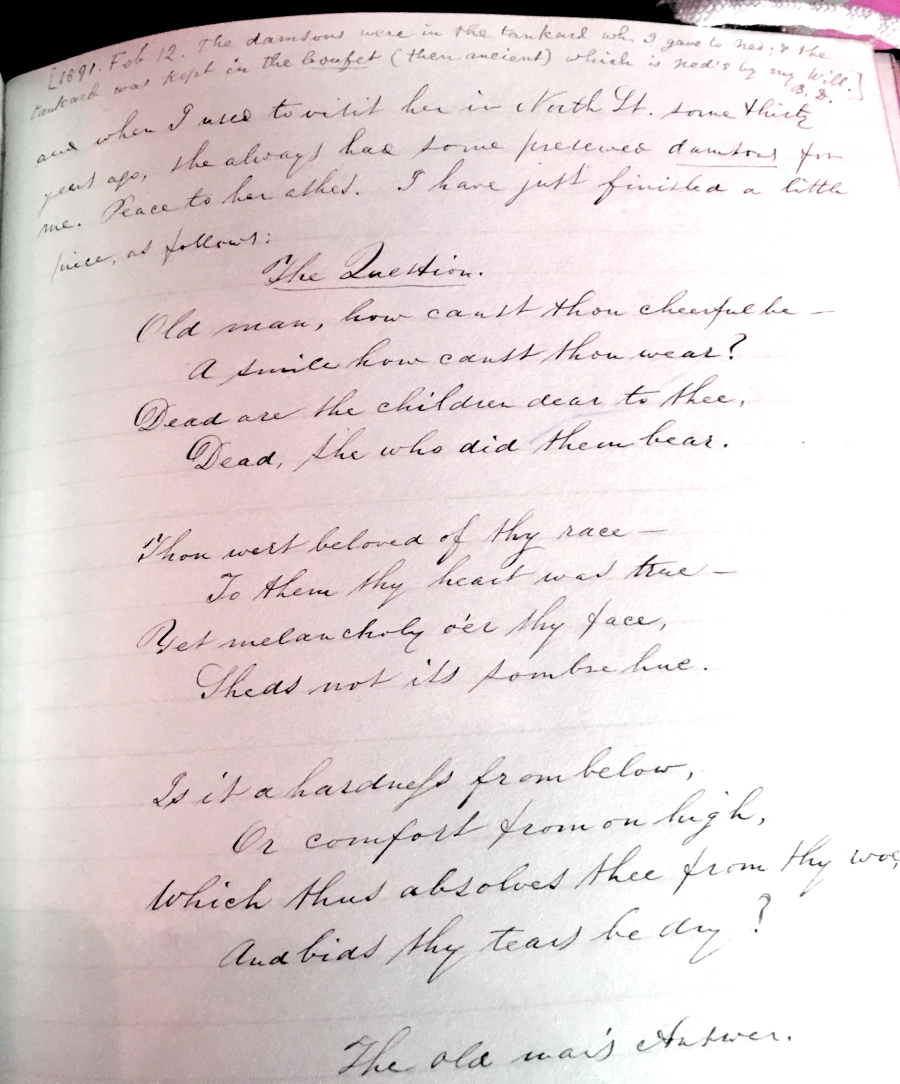 [1891. Feb 12. The damsons were in the tankard wh. I gave to Ned; & the
tankard was kept in the boufet (then ancient) which is Ned's by my Will.]
B. D.
and when I used to visit her in North St. some thirty
years ago, she always had some preserved damsons for
me. Peace to her ashes. I have just finished a little
piece, as follows:
The Question.
Old man, how canst thou cheerful be —
A smile how canst thou wear?
Dead are the children dear to thee,
Dead, she who did them bear.
Thou wert beloved of thy race —
To them thy heart was true —
Yet melancholy o'er thy face,
Sheds not its sombre hue.
Is it a hardness from below,
Or comfort from on high,
Which thus absolves thee from thy woe,
And bids thy tears be dry?
The old man's Answer.